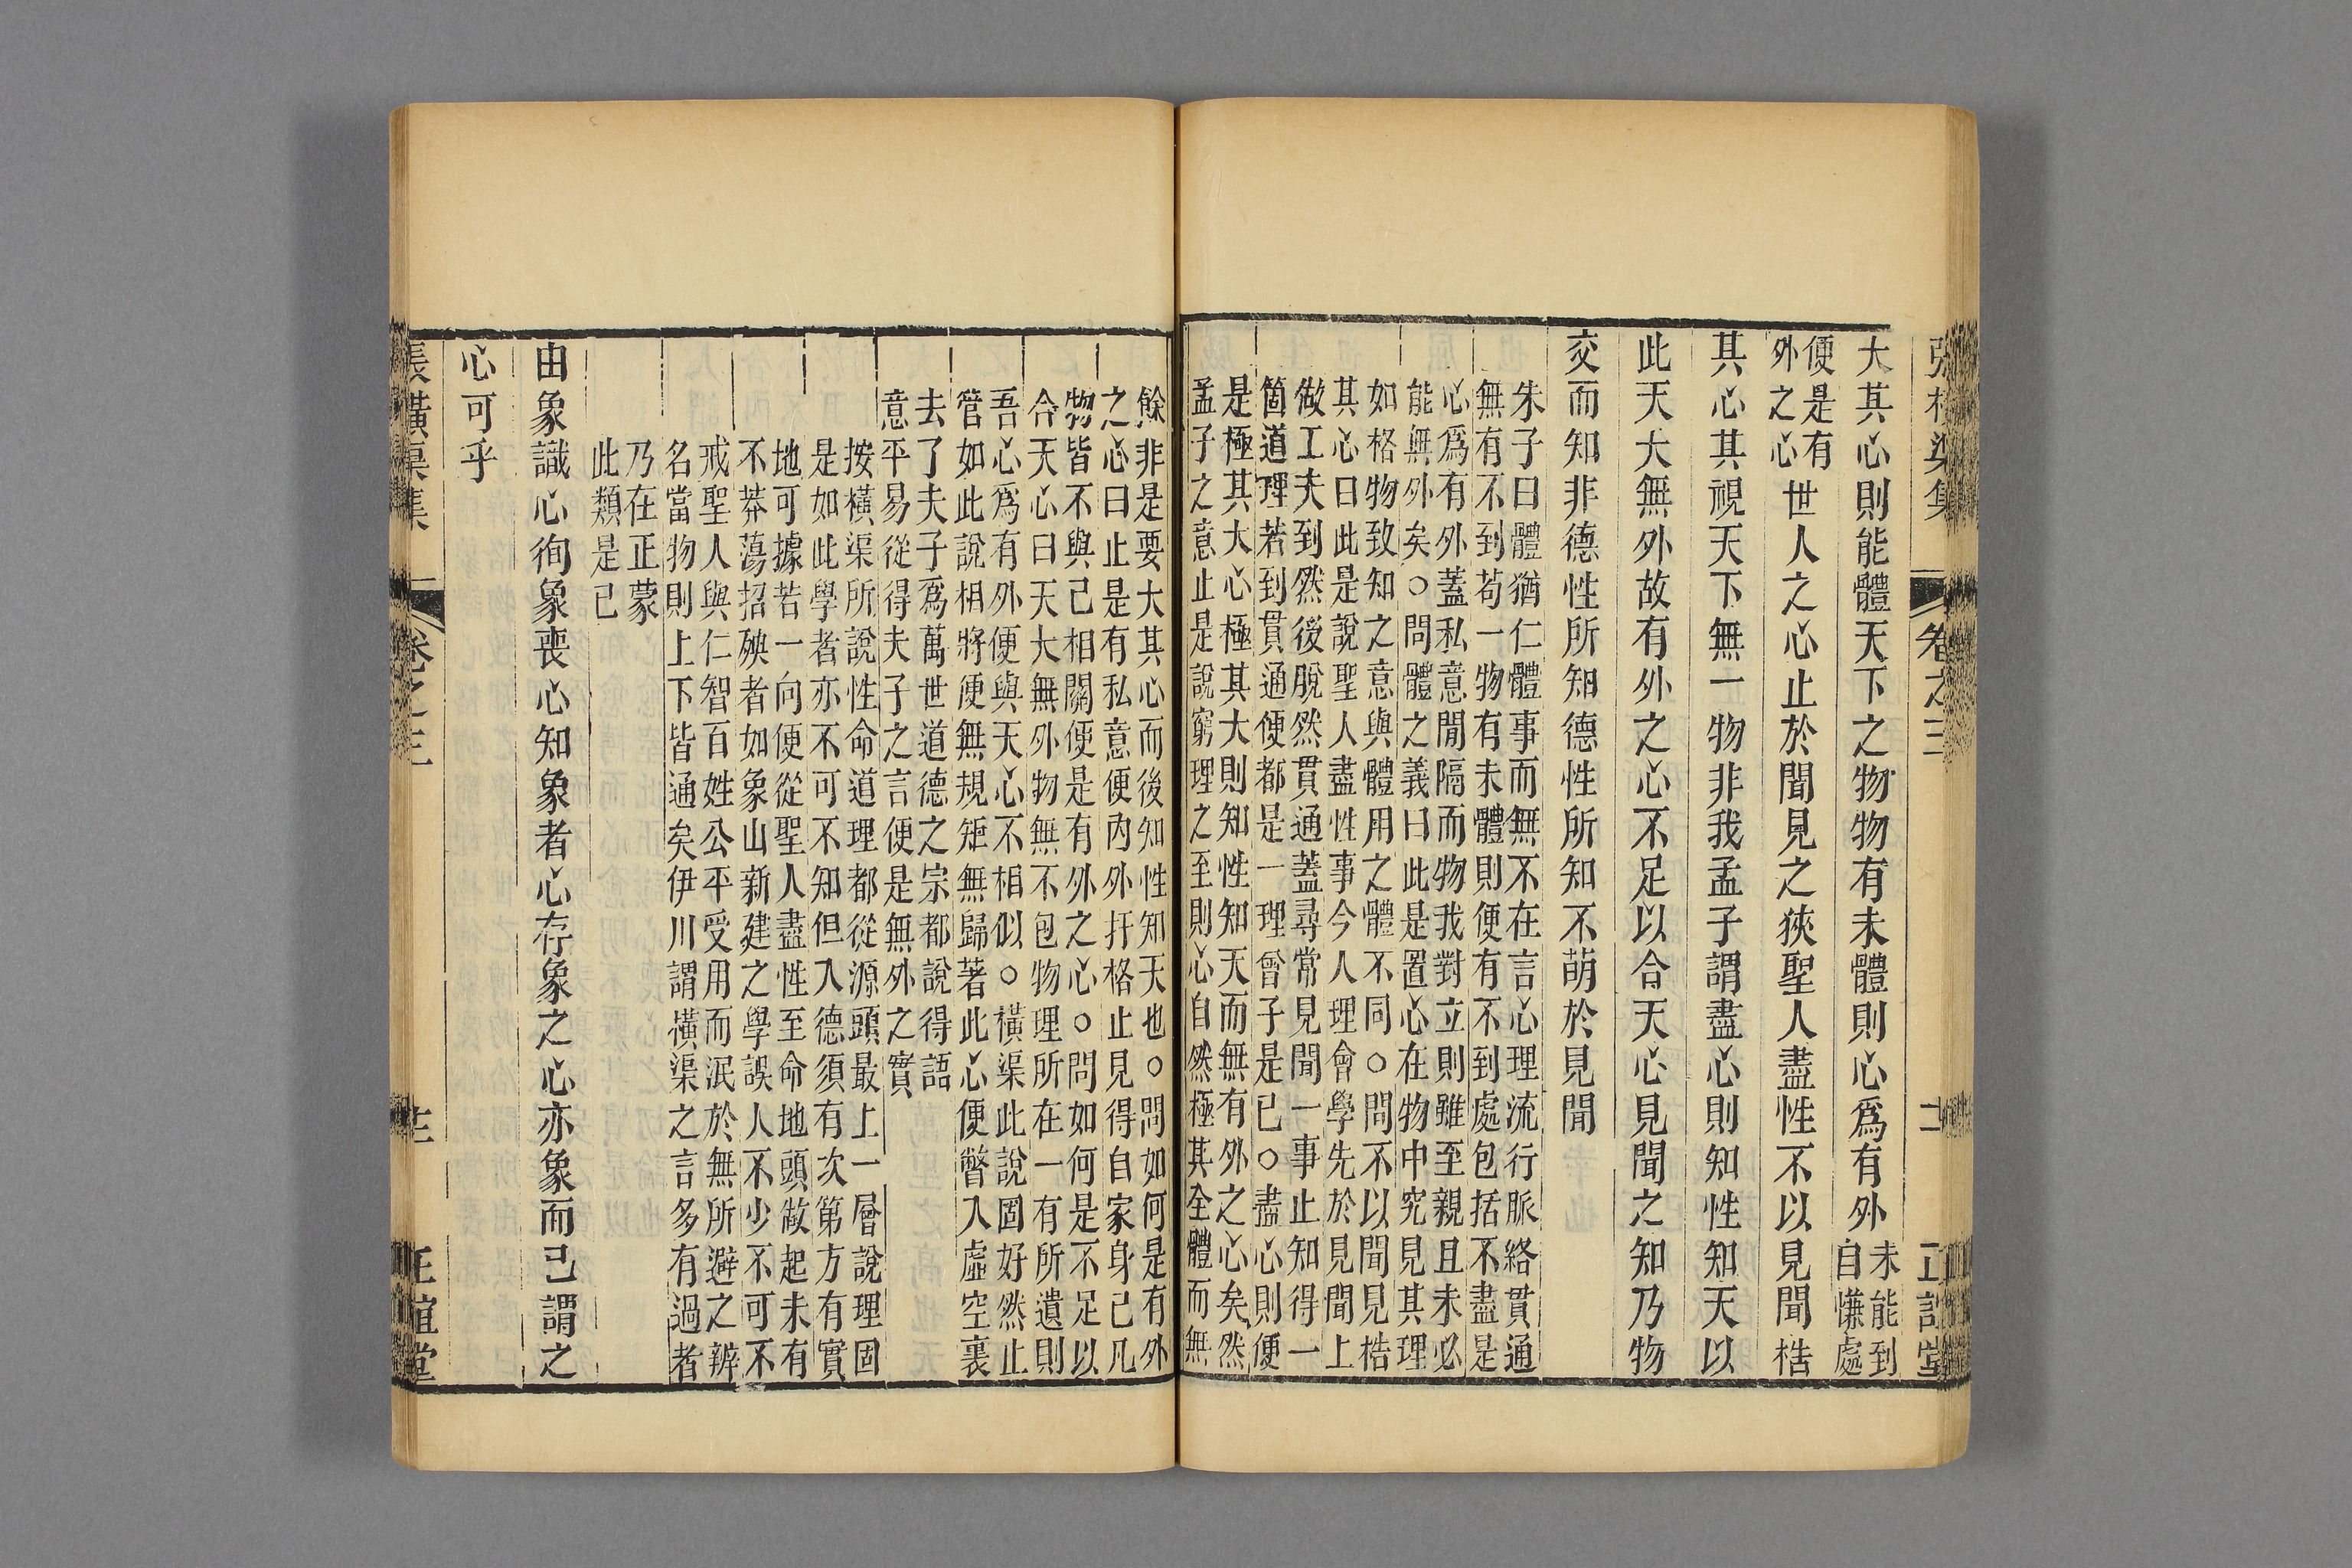 大其心則能體天下之物物有未體則心爲有外未能到自慊處
便是有外之心世人之心止於聞見之狹聖人盡性不以見聞梏
其心其視天下無一物非我孟子謂盡心則知性知天以
此天大無外故有外之心不足以合天心見聞之知乃物
交而知非德性所知德性所知不萌於見聞
朱子曰體猶仁體事而無不在言心理流行脈絡貫通
無有不到苟一物有未體則便有不到處包括不盡是
心爲有外蓋私意閒隔而物我對立則雖至親且未必
能無外矣○問體之義曰此是置心在物中究見其理
如格物致知之意與體用之體不同○問不以聞見梏
其心曰此是說聖人盡性事今人理會學先於見聞上
做工夫到然後脫然貫通蓋尋常見聞一事止知得一
箇道理若到貫通便都是一理曾子是已○盡心則便
是極其大心極其大則知性知天而無有外之心矣然
孟子之意止是說窮理之至則心自然極其全體而無
餘非是要大其心而後知性知天也○問如何是有外
之心曰止是有私意便內外扞格止見得自家身己凡
物皆不與己相關便是有外之心○問如何是不足以
合天心曰天大無外物無不包物理所在一有所遺則
吾心爲有外便與天心不相似○橫渠此說固好然止
管如此說相將便無規矩無歸著此心便瞥入虛空裏
去了夫子爲萬世道德之宗都說得語
意平易從得夫子之言便是無外之實
按橫渠所說性命道理都從源頭最上一層說理固
是如此學者亦不可不知但入德須有次第方有實
地可據若一向便從聖人盡性至命地頭做起未有
不莽蕩招殃者如象山新建之學誤人不少不可不
戒聖人與仁智百姓公平受用而泯於無所避之辨
名當物則上下皆通矣伊川謂橫渠之言多有過者
乃在正蒙
此類是已
由象識心徇象喪心知象者心存象之心亦象而已謂之
心可乎
張橫渠集 卷之三 正誼堂